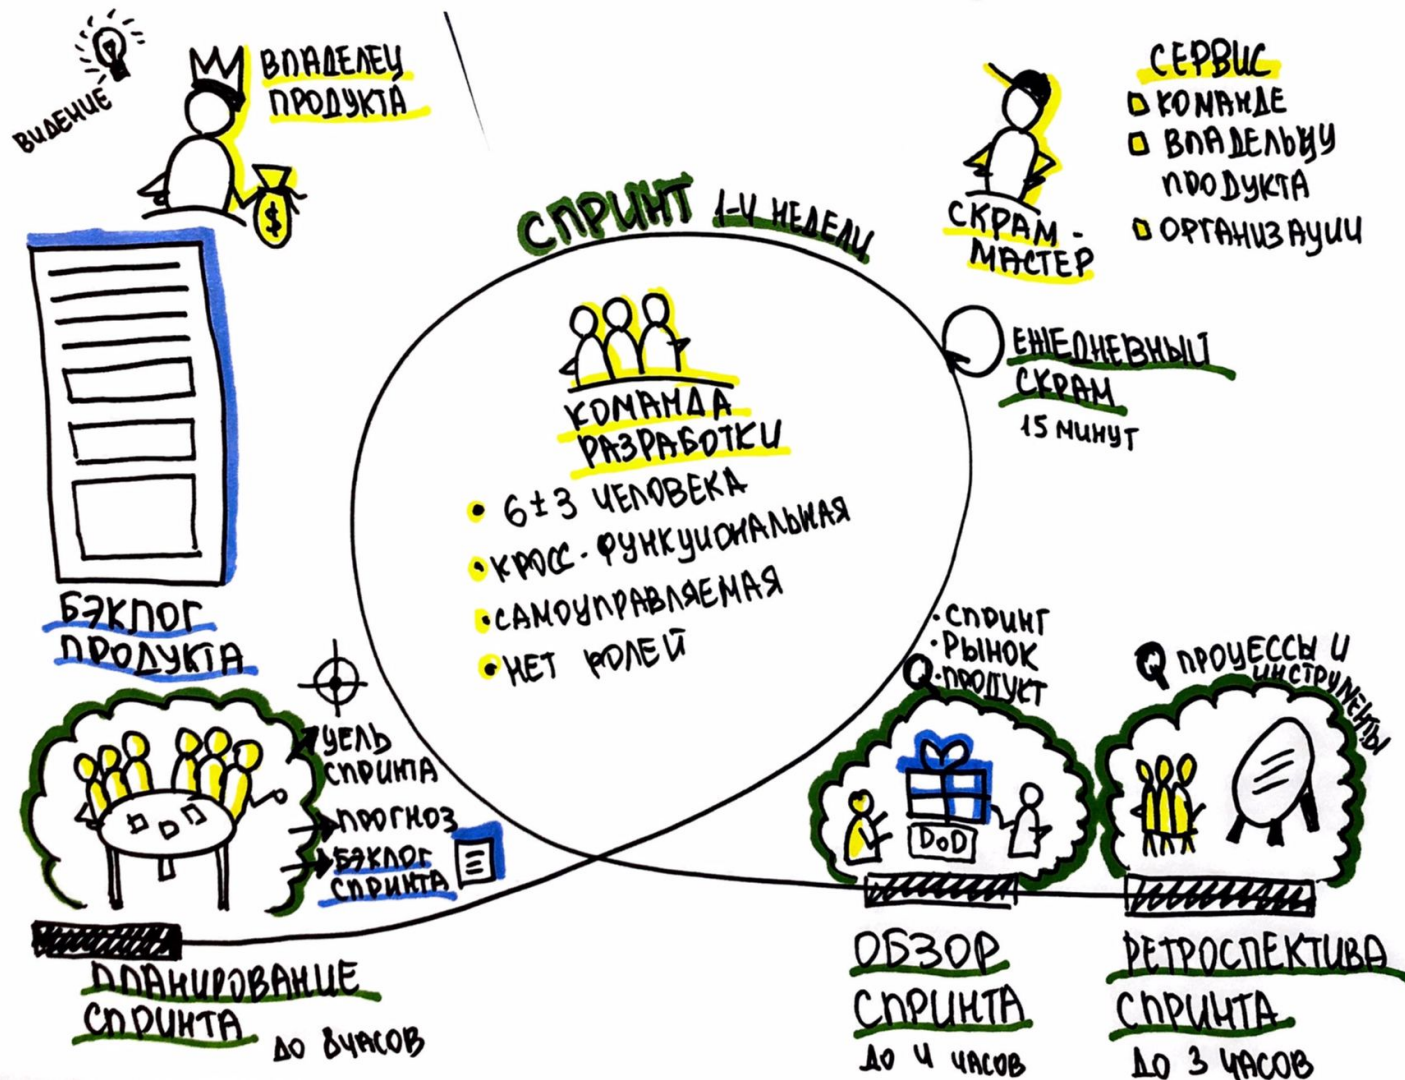 ВИДЕНИЕ
ВЛАДЕЛЕЦ
ПРОДУКТА
$
СПРИНТ 1-4 НЕДЕЛИ
СКРАМ-
МАСТЕР
СЕРВИС
КОМАНДЕ
ВЛАДЕЛЬЦУ
ПРОДУКТА
ОРГАНИЗАЦИИ
ЕЖЕДНЕВНЫЙ
СКРАМ
15 МИНУТ
КОМАНДА
РАЗРАБОТКИ
• 6±3 ЧЕЛОВЕКА
• КРОСС-ФУНКЦИОНАЛЬНАЯ
• САМОУПРАВЛЯЕМАЯ
• НЕТ РОЛЕЙ
БЭКЛОГ
ПРОДУКТА
ЦЕЛЬ
СПРИНТА
ПРОГНОЗ
БЭКЛОГ
СПРИНТА
ПЛАНИРОВАНИЕ
СПРИНТА
ДО 8 ЧАСОВ
• СПРИНТ
• РЫНОК
• ПРОДУКТ
DoD
ОБЗОР
СПРИНТА
ДО 4 ЧАСОВ
ПРОЦЕССЫ И
ИНСТРУМЕНТЫ
РЕТРОСПЕКТИВА
СПРИНТА
ДО 3 ЧАСОВ